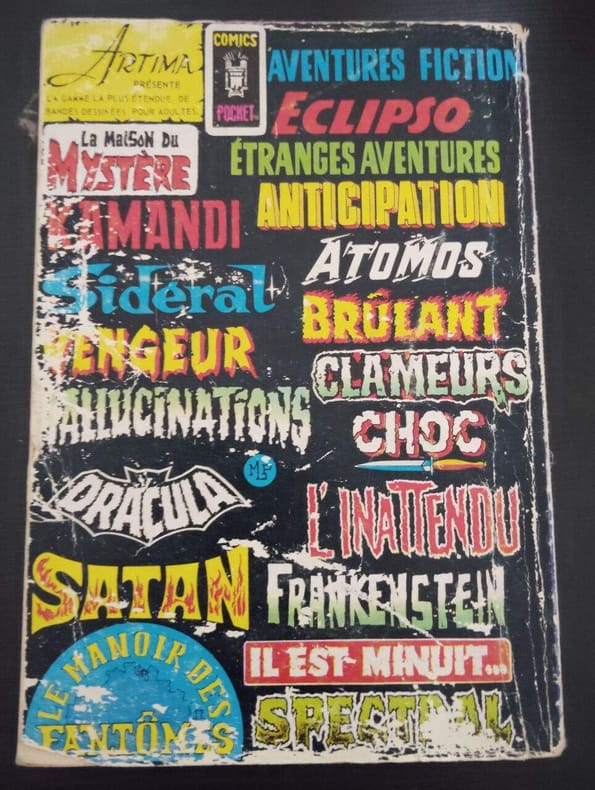 ARTIMA
PRÉSENTE
LA GAMME LA PLUS ÉTENDUE DE
BANDES DESSINÉES POUR ADULTES
COMICS
POCKET
AVENTURES FICTION
ECLIPSO
LA MAISON DU
MYSTÈRE
ÉTRANGES AVENTURES
KAMANDI
ANTICIPATION
ATOMOS
Sidéral
BRÛLANT
VENGEUR
CLAMEURS
HALLUCINATIONS
CHOC
DRACULA
MLF
L'INATTENDU
SATAN
FRANKENSTEIN
LE MANOIR DES
FANTÔMES
IL EST MINUIT...
SPECTRAL